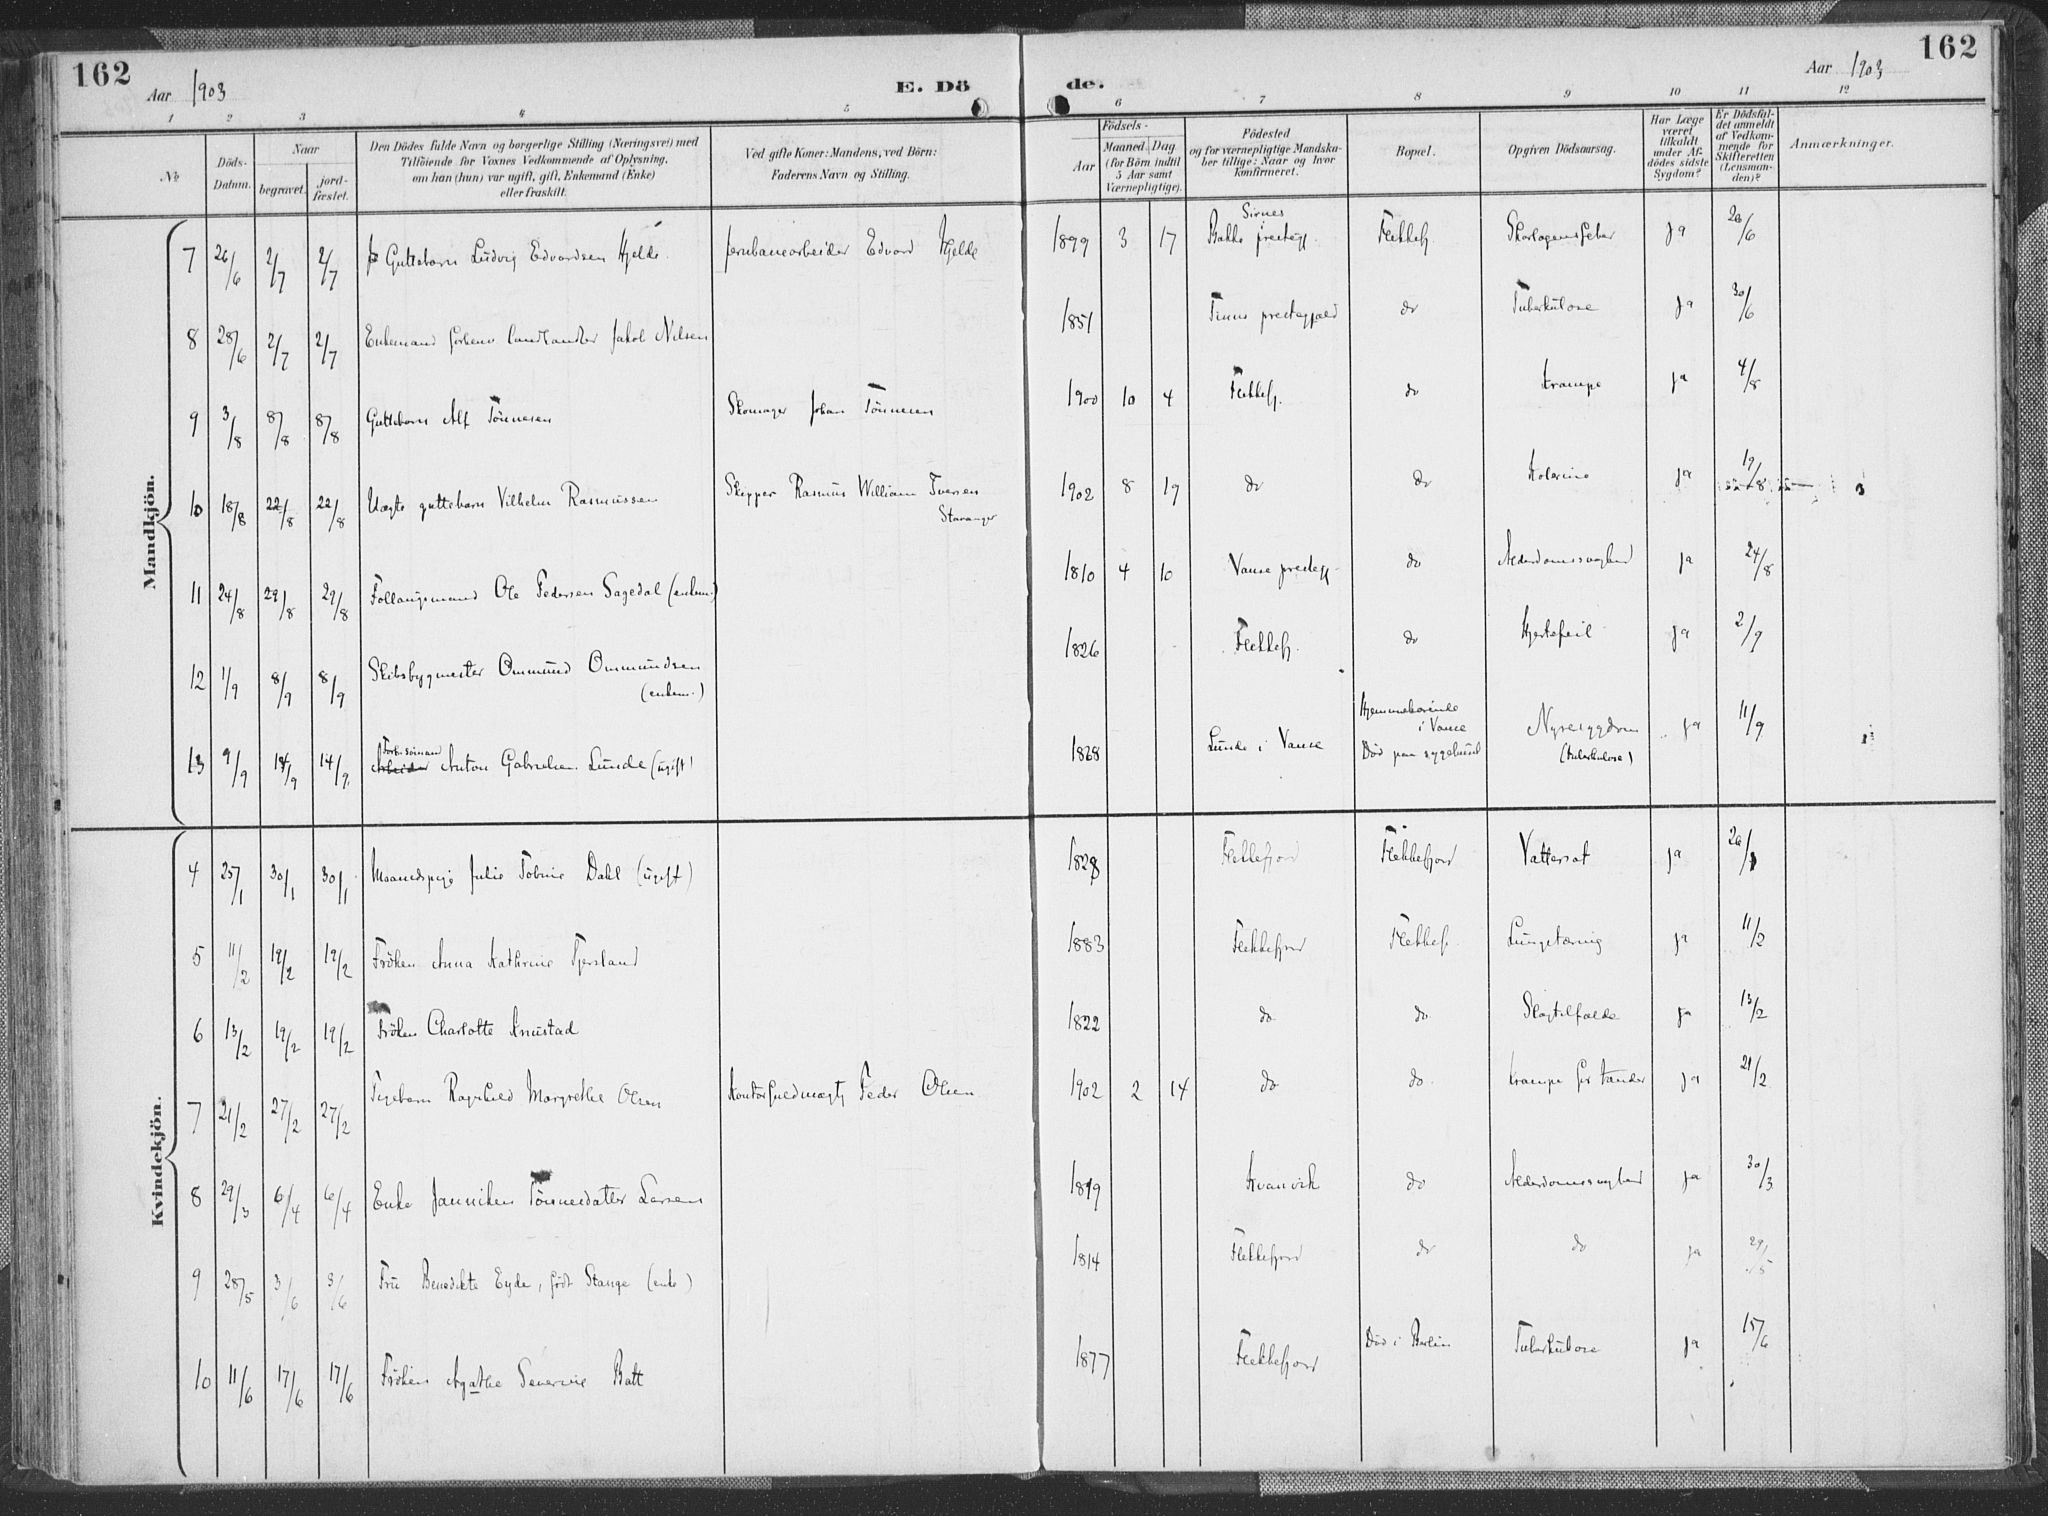 162
Aar 1903
E. Dö
de.
Aar 1903
162
1 2 3 4 5 6 7 8 9 10 11 12
№
Döds-Datum.
Naar
begravet.
jord-fæstet.
Den Dödes fulde Navn og borgerlige Stilling (Næringsvei) med
Tilföiende for Voxnes Vedkommende af Oplysning,
om han (hun) var ugift, gift, Enkemand (Enke)
eller fraskilt.
Ved gifte Koner: Mandens, ved Börn:
Faderens Navn og Stilling.
Födsels-
Aar
Maaned Dag
(for Börn indtil
5 Aar samt
Værnepligtige).
Födested
og for værnepligtige Mandska-
ber tillige: Naar og hvor
Konfirmeret.
Bopæl.
Opgiven Dödsaarsag.
Har Læge
været
tilkaldt
under Af-
dödes sidste
Sygdom?
Er Dödsfal-
det anmeldt
af Vedkom-
mende for
Skifteretten
(Lensman-
den)?
Anmærkninger.
Mandkjön.
7 26/6 2/7 2/7 Guttebarn Ludvig Edvardsen Hjelde. Jernbanearbeider Edvard Hjelde 1899 3 17 Sirnes Bakke prestegj. Flekkefj. Skarlagensfeber ja 26/6
8 28/6 2/7 2/7 Enkemand Landhandler Jakob Nilsen 1851 prestegjæld do Tuberkulose ja 30/6
9 3/8 8/8 8/8 Guttebarn Alf Tönnesen Skomager Johan Tönnesen 1900 10 4 Flekkefj. do Krampe ja 4/8
10 18/8 22/8 22/8 Uægte guttebarn Vilhelm Rasmussen Skipper Rasmus William Iversen Stavanger 1902 8 19 do do Kolerine ja 19/8
11 24/8 29/8 29/8 Follaugsmand Ole Pedersen Sagedal (enkem.) 1810 4 10 Vanse prestegj. do Alderdomssvaghed ja 24/8
12 1/9 8/9 8/9 Skibsbygmester Ommund Ommundsen (enkem.) 1826 Flekkefj. do Hjertefeil ja 2/9
13 9/9 14/9 14/9. Arbeider Anton Gabrielsen Lunde (ugift) 1868 Lunde i Vanse Hjemmehörende i Vanse Död paa sygehuset Nyresygdom (tuberkulose) ja 11/9
Kvindekjön.
4 25/1 30/1 30/1 Maanedspige Julie Tobine Dahl (ugift) 1828 Flekkefjord Flekkefjord Vattersot ja 26/1
5 11/2 19/2 19/2 Fröken Anna Kathrine Tjersland 1883 Flekkefjord Flekkefj. Lungetæring ja 11/2
6 13/2 19/2 19/2 Fröken Charlotte Knustad 1822 do do Slagtilfælde ja 13/2
7 21/2 27/2 27/2 Pigebarn Ragnhild Margrethe Olsen Kontorfuldmægtig Peder Olsen 1902 2 14 do do. Krampe for tænder ja 21/2
8 29/3 6/4 6/4 Enke Janniken Tönnesdatter Larsen 1819 Kvanvik do Alderdomssvaghed ja 30/3
9 28/5 3/6 3/6 Fru Benedikte Eyde, födt Stange (enke) 1814 Flekkefjord do do ja 29/5
10 11/6 17/6 17/6 Fröken Agathe Severine Batt 1877 Flekkefjord Död i Berlin Tuberkulose ja 15/6